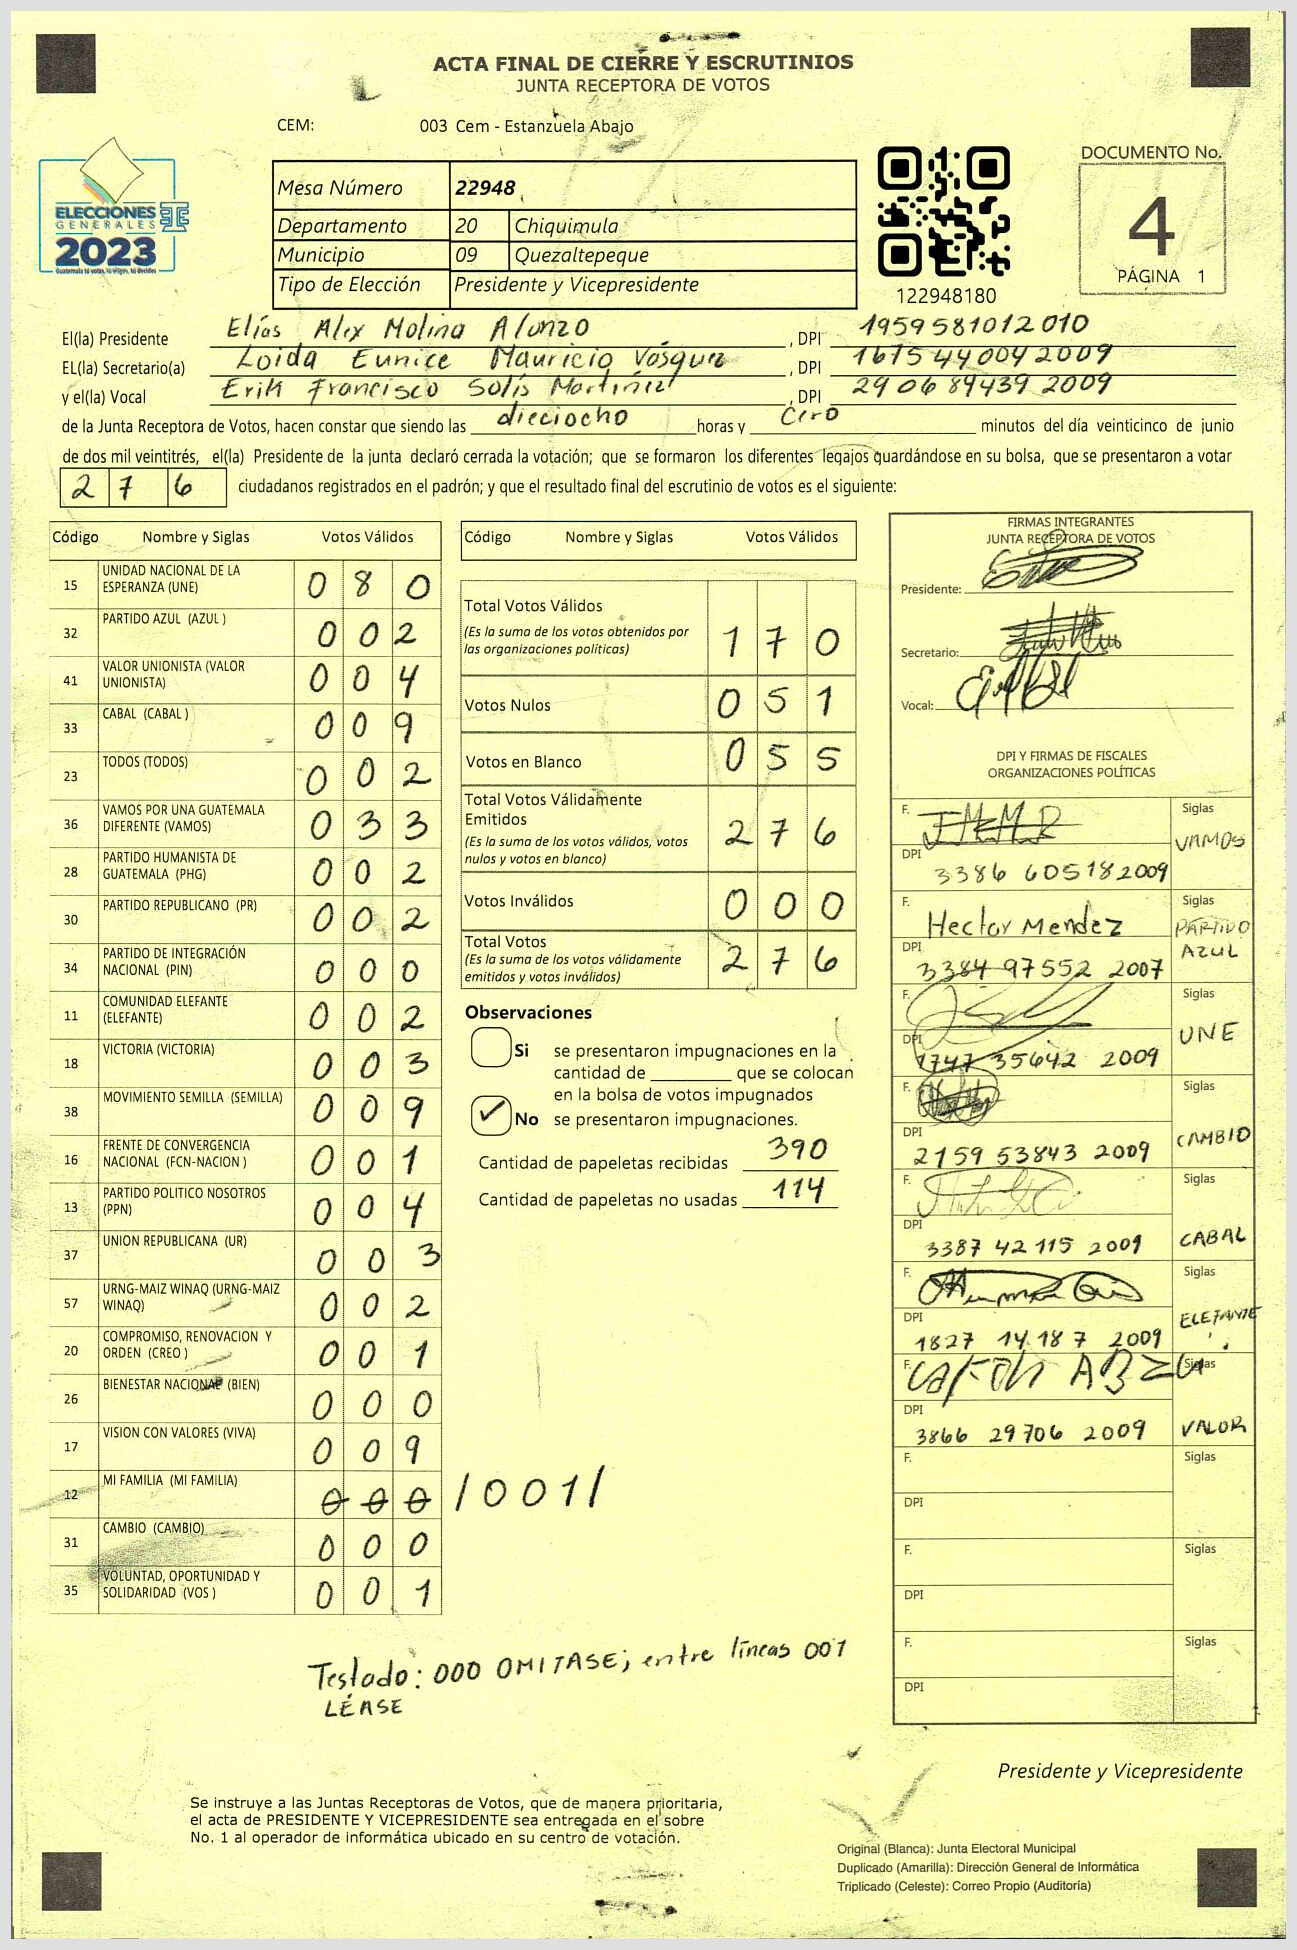 ACTA FINAL DE CIERRE Y ESCRUTINIOS
JUNTA RECEPTORA DE VOTOS
CEM: 003 Cem - Estanzuela Abajo
ELECCIONES
GENERALES
2023
Guatemala tú votas, tú eliges, tú decides
Mesa Número 22948
Departamento 20 Chiquimula
Municipio 09 Quezaltepeque
Tipo de Elección Presidente y Vicepresidente
122948180
DOCUMENTO No.
4
PÁGINA 1
El(la) Presidente Elías Alex Molina Alonzo , DPI 1959581012010
EL(la) Secretario(a) Loida Eunice Mauricio Vásquez , DPI 1675440042009
y el(la) Vocal Erik Francisco Solís Martínez , DPI 290689439 2009
de la Junta Receptora de Votos, hacen constar que siendo las dieciocho horas y Cero minutos del día veinticinco de junio
de dos mil veintitrés, el(la) Presidente de la junta declaró cerrada la votación; que se formaron los diferentes legajos guardándose en su bolsa, que se presentaron a votar
2 7 6 ciudadanos registrados en el padrón; y que el resultado final del escrutinio de votos es el siguiente:
Código Nombre y Siglas Votos Válidos
15 UNIDAD NACIONAL DE LA ESPERANZA (UNE) 0 8 0
32 PARTIDO AZUL (AZUL ) 0 0 2
41 VALOR UNIONISTA (VALOR UNIONISTA) 0 0 4
33 CABAL (CABAL ) 0 0 9
23 TODOS (TODOS) 0 0 2
36 VAMOS POR UNA GUATEMALA DIFERENTE (VAMOS) 0 3 3
28 PARTIDO HUMANISTA DE GUATEMALA (PHG) 0 0 2
30 PARTIDO REPUBLICANO (PR) 0 0 2
34 PARTIDO DE INTEGRACIÓN NACIONAL (PIN) 0 0 0
11 COMUNIDAD ELEFANTE (ELEFANTE) 0 0 2
18 VICTORIA (VICTORIA) 0 0 3
38 MOVIMIENTO SEMILLA (SEMILLA) 0 0 9
16 FRENTE DE CONVERGENCIA NACIONAL (FCN-NACION ) 0 0 1
13 PARTIDO POLITICO NOSOTROS (PPN) 0 0 4
37 UNION REPUBLICANA (UR) 0 0 3
57 URNG-MAIZ WINAQ (URNG-MAIZ WINAQ) 0 0 2
20 COMPROMISO, RENOVACION Y ORDEN (CREO ) 0 0 1
26 BIENESTAR NACIONAL (BIEN) 0 0 0
17 VISION CON VALORES (VIVA) 0 0 9
12 MI FAMILIA (MI FAMILIA) 0 0 0 /001/
31 CAMBIO (CAMBIO) 0 0 0
35 VOLUNTAD, OPORTUNIDAD Y SOLIDARIDAD (VOS ) 0 0 1
Código Nombre y Siglas Votos Válidos
Total Votos Válidos 1 7 0
(Es la suma de los votos obtenidos por
las organizaciones políticas)
Votos Nulos 0 5 1
Votos en Blanco 0 5 5
Total Votos Válidamente
Emitidos 2 7 6
(Es la suma de los votos válidos, votos
nulos y votos en blanco)
Votos Inválidos 0 0 0
Total Votos 2 7 6
(Es la suma de los votos válidamente
emitidos y votos inválidos)
Observaciones
Si se presentaron impugnaciones en la
cantidad de ________ que se colocan
en la bolsa de votos impugnados
✓ No se presentaron impugnaciones.
Cantidad de papeletas recibidas 390
Cantidad de papeletas no usadas 114
FIRMAS INTEGRANTES
JUNTA RECEPTORA DE VOTOS
Presidente:
Secretario:
Vocal:
DPI Y FIRMAS DE FISCALES
ORGANIZACIONES POLÍTICAS
F. Siglas VAMOS
DPI 3386 60518 2009
F. Hector Mendez Siglas PARTIDO AZUL
DPI 3384 97552 2007
F. Siglas UNE
DPI 1747 35642 2009
F. Siglas CAMBIO
DPI 2159 53843 2009
F. Siglas CABAL
DPI 3387 42 115 2009
F. Siglas ELEFANTE
DPI 1827 14 18 7 2009
F. Siglas VALOR
DPI 3866 29706 2009
F. Siglas
DPI
F. Siglas
DPI
F. Siglas
DPI
Testado: 000 OMITASE; entre líneas 001
LÉASE
Presidente y Vicepresidente
Se instruye a las Juntas Receptoras de Votos, que de manera prioritaria,
el acta de PRESIDENTE Y VICEPRESIDENTE sea entregada en el sobre
No. 1 al operador de informática ubicado en su centro de votación.
Original (Blanca): Junta Electoral Municipal
Duplicado (Amarilla): Dirección General de Informática
Triplicado (Celeste): Correo Propio (Auditoría)